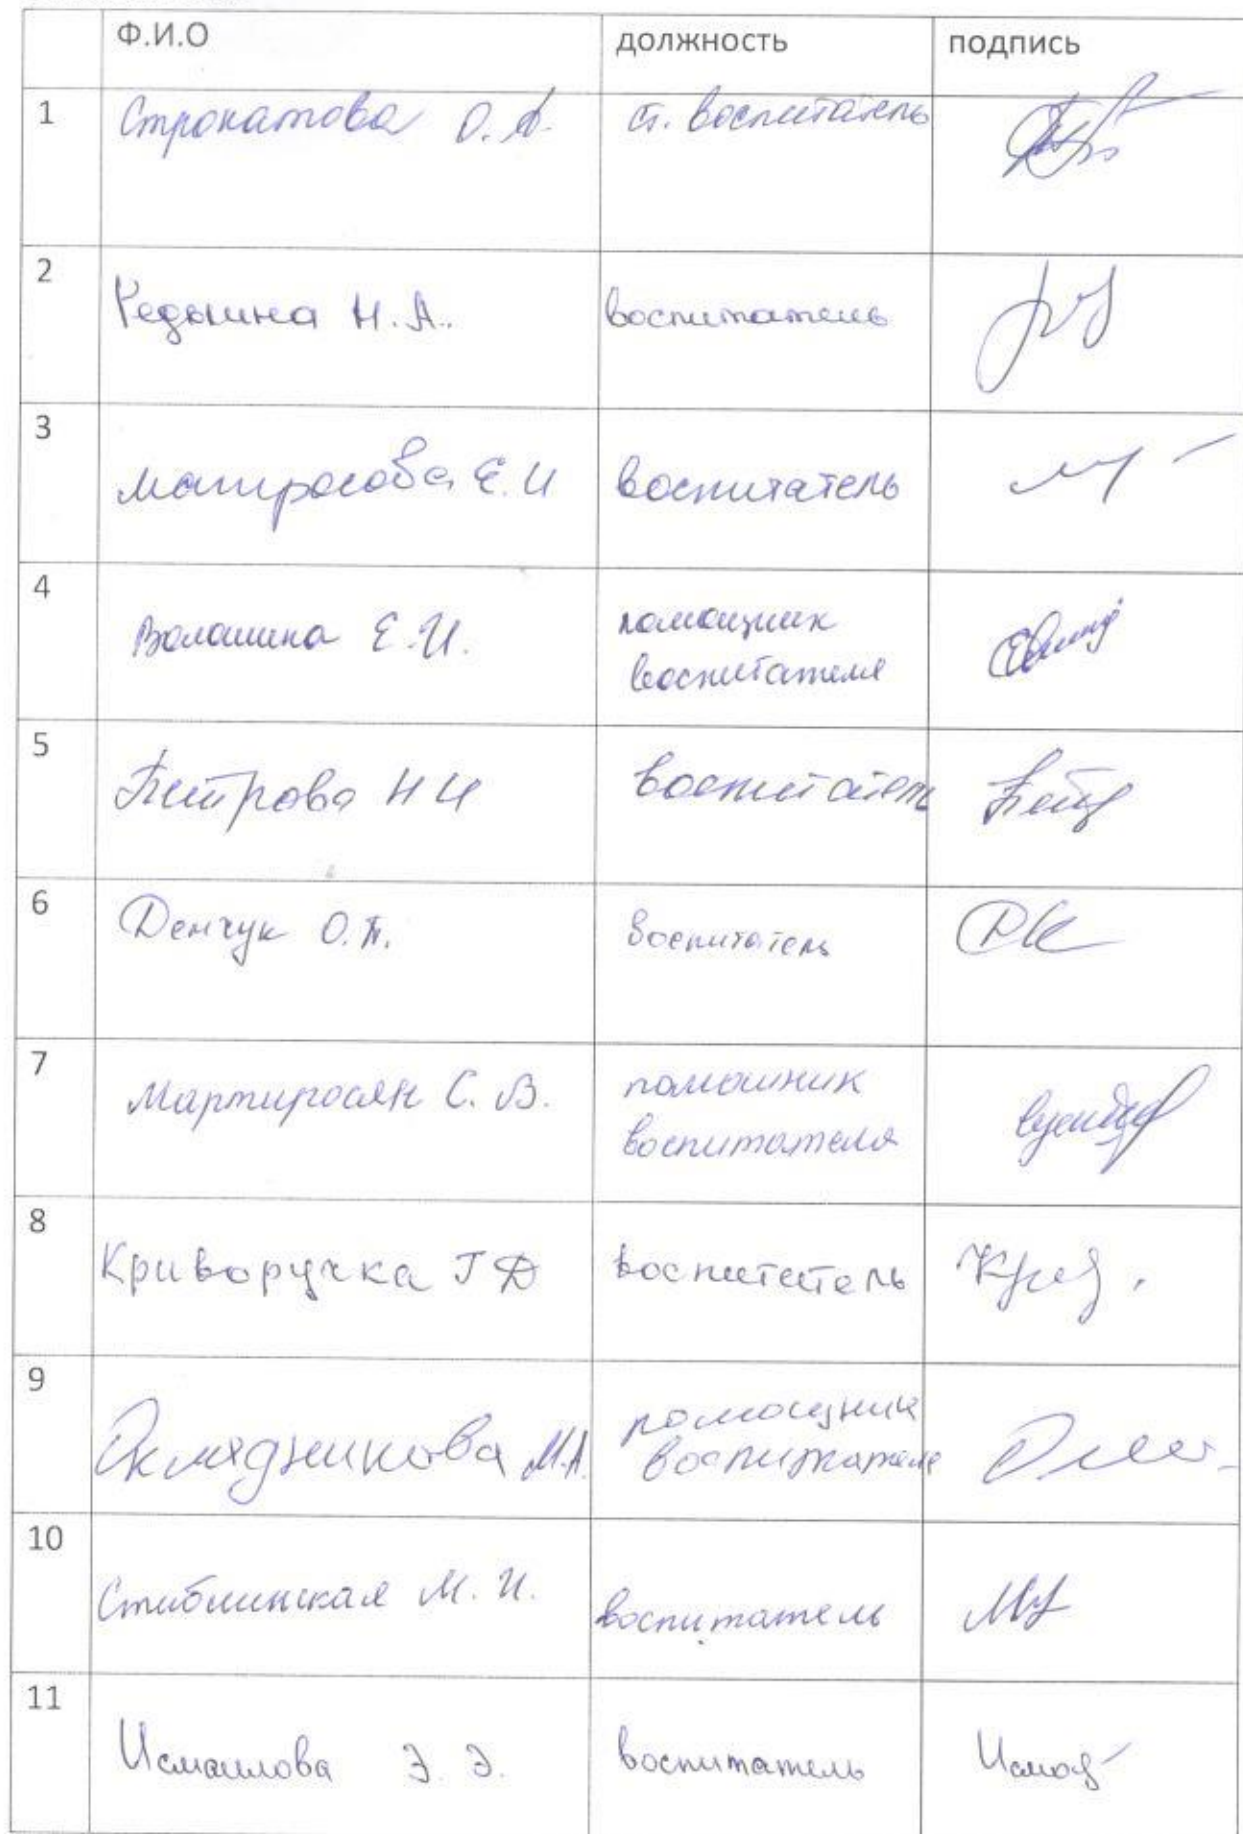 Ф.И.О должность подпись
1 Строкатова О.А. ст. воспитатель
2 Редькина Н.А. воспитатель
3 Матросова Е.И воспитатель
4 Волошина Е.И. помощник
воспитателя
5 Петрова Н И воспитатель
6 Демчук О.П. воспитатель
7 Мартиросян С.В. помошник
воспитателя
8 Криворучка Г Д воспитатель
9 Окладникова М.А. помощник
воспитателя
10 М.И. воспитатель
11 Исмаилова Э.Э. воспитатель